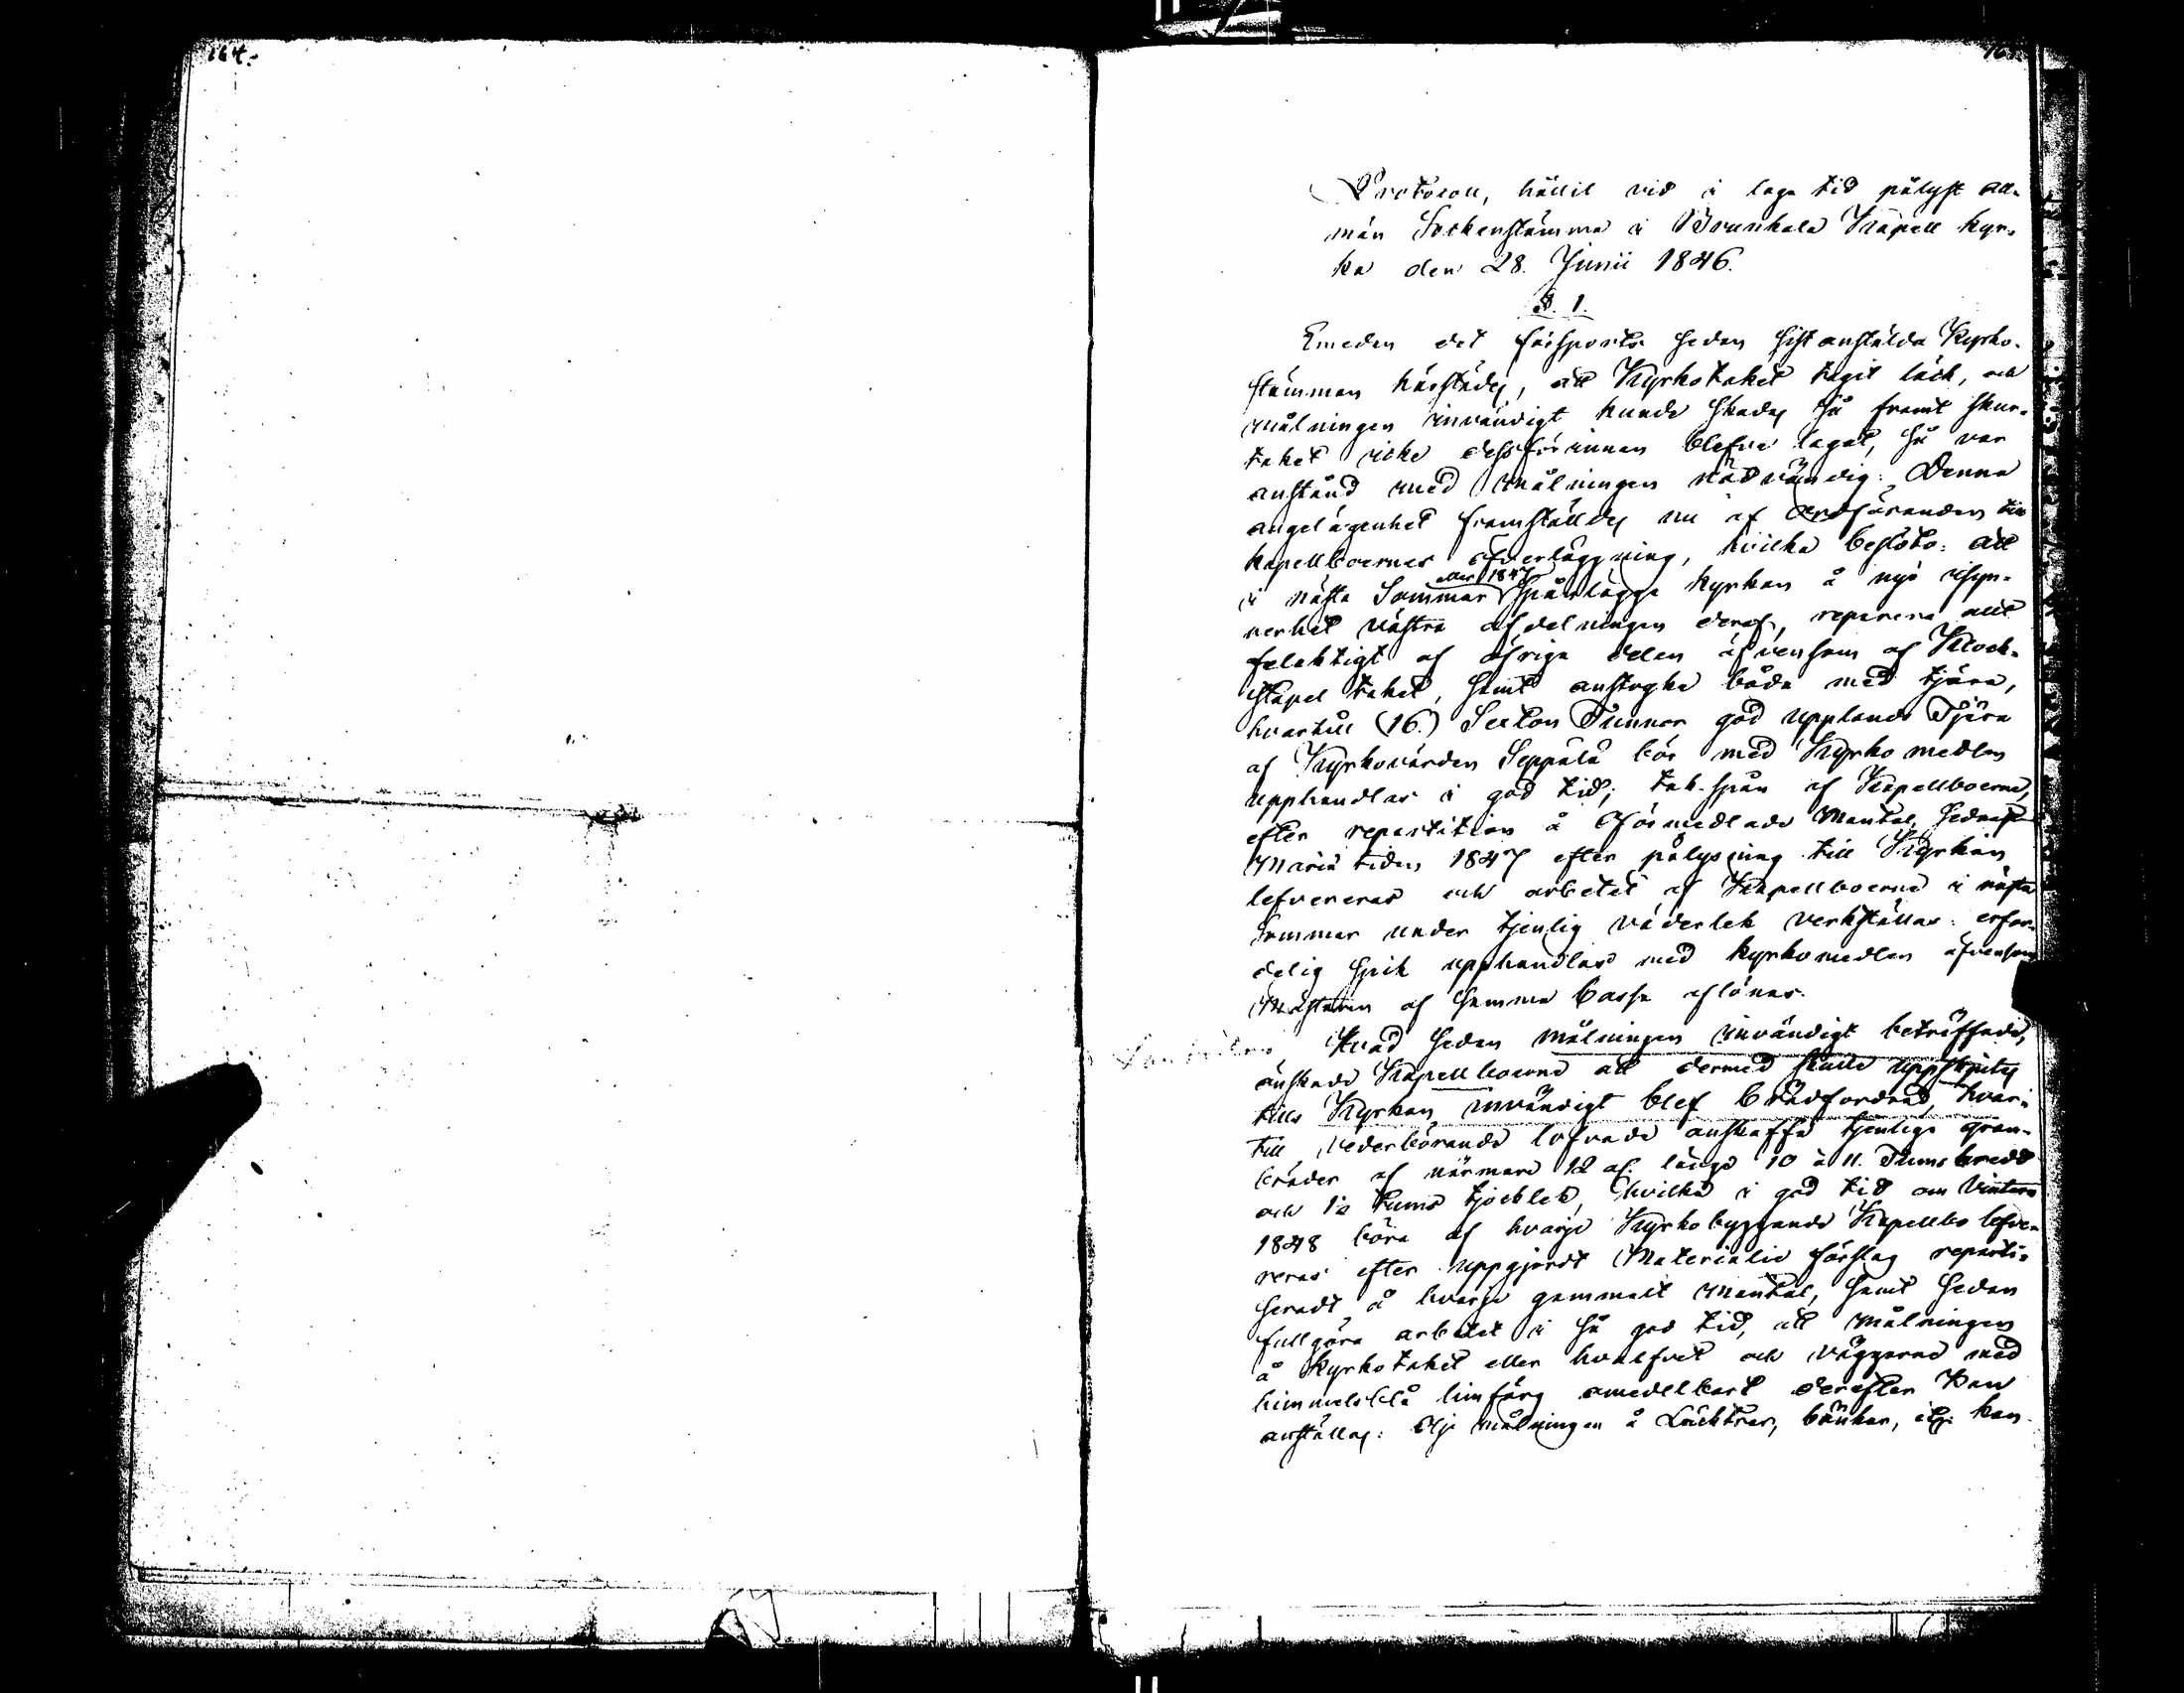 164.
Protocoll, hållit vid i laga tid pålyst all-
män Sockenstämma i Brunkala Kapell kyr-
ka den 28. Junii 1846.
§. 1.
Emedan det försports sedan sist anstälda Kyrko-
stämman härstädes, att Kyrkotaket tagit läck, och
målningen invändigt kunde skadas så framt skur-
taket icke dessförinnan blefve lagat, så var
anstånd med målningen nödvändig: Denna
angelägenhet framställdes nu af Ordföranden till
kapellboernes öfverläggning, hvilka beslöto: att
i nästa Sommar eller 1847 spånlägga kyrkan å nyo
verket västra afdelningen deraf, reparera allt
felaktigt af öfriga delen äfvensom af Klock-
stapel taket, samt anstryka båda med tjära,
hvartill (16.) Sexton Tunnor god upplands Tjära
af Kyrkovärden Seppälä bör med Kyrko medlen
upphandlas i god tid; tak-spån af Kapellboerne,
efter repartition å Oförmedlade Mantal,
Mariæ tiden 1847 efter pålysning till Kyrkan
levereras och arbetet af Kapellboerne i nästa
Sommar under tjenlig väderlek verkställas: erfor-
delig spik upphandlas med kyrkomedlen äfvensom
Mästaren af samma Cassa aflönas.
Hvad sedan målningen invändigt beträffade,
önskade Kapellboerne att dermed skulle uppskjutas
tills Kyrkan invändigt blef brädfordrad, hvar-
till vederbörande lofvade anskaffa tjenliga gran-
bräder af närmare 12 al. längd 10 à 11. Tums bredd
och 1½ tums tjocklek, hvilka i god tid om Vintern
1848 böra af hvarje Kyrkobyggande Kapellbo lefve-
reras efter uppgjordt Materialie förslag reparti-
seradt å hvarje gammalt Mantal, samt sedan
fullgöra arbetet i så god tid, att målningen
å Kyrkotaket eller hvalfvet och väggarne med
himmelsblå limfärg omedelbart derefter kan
anställas: Olje målningen å Läcktrar, bänkar, etc. kan